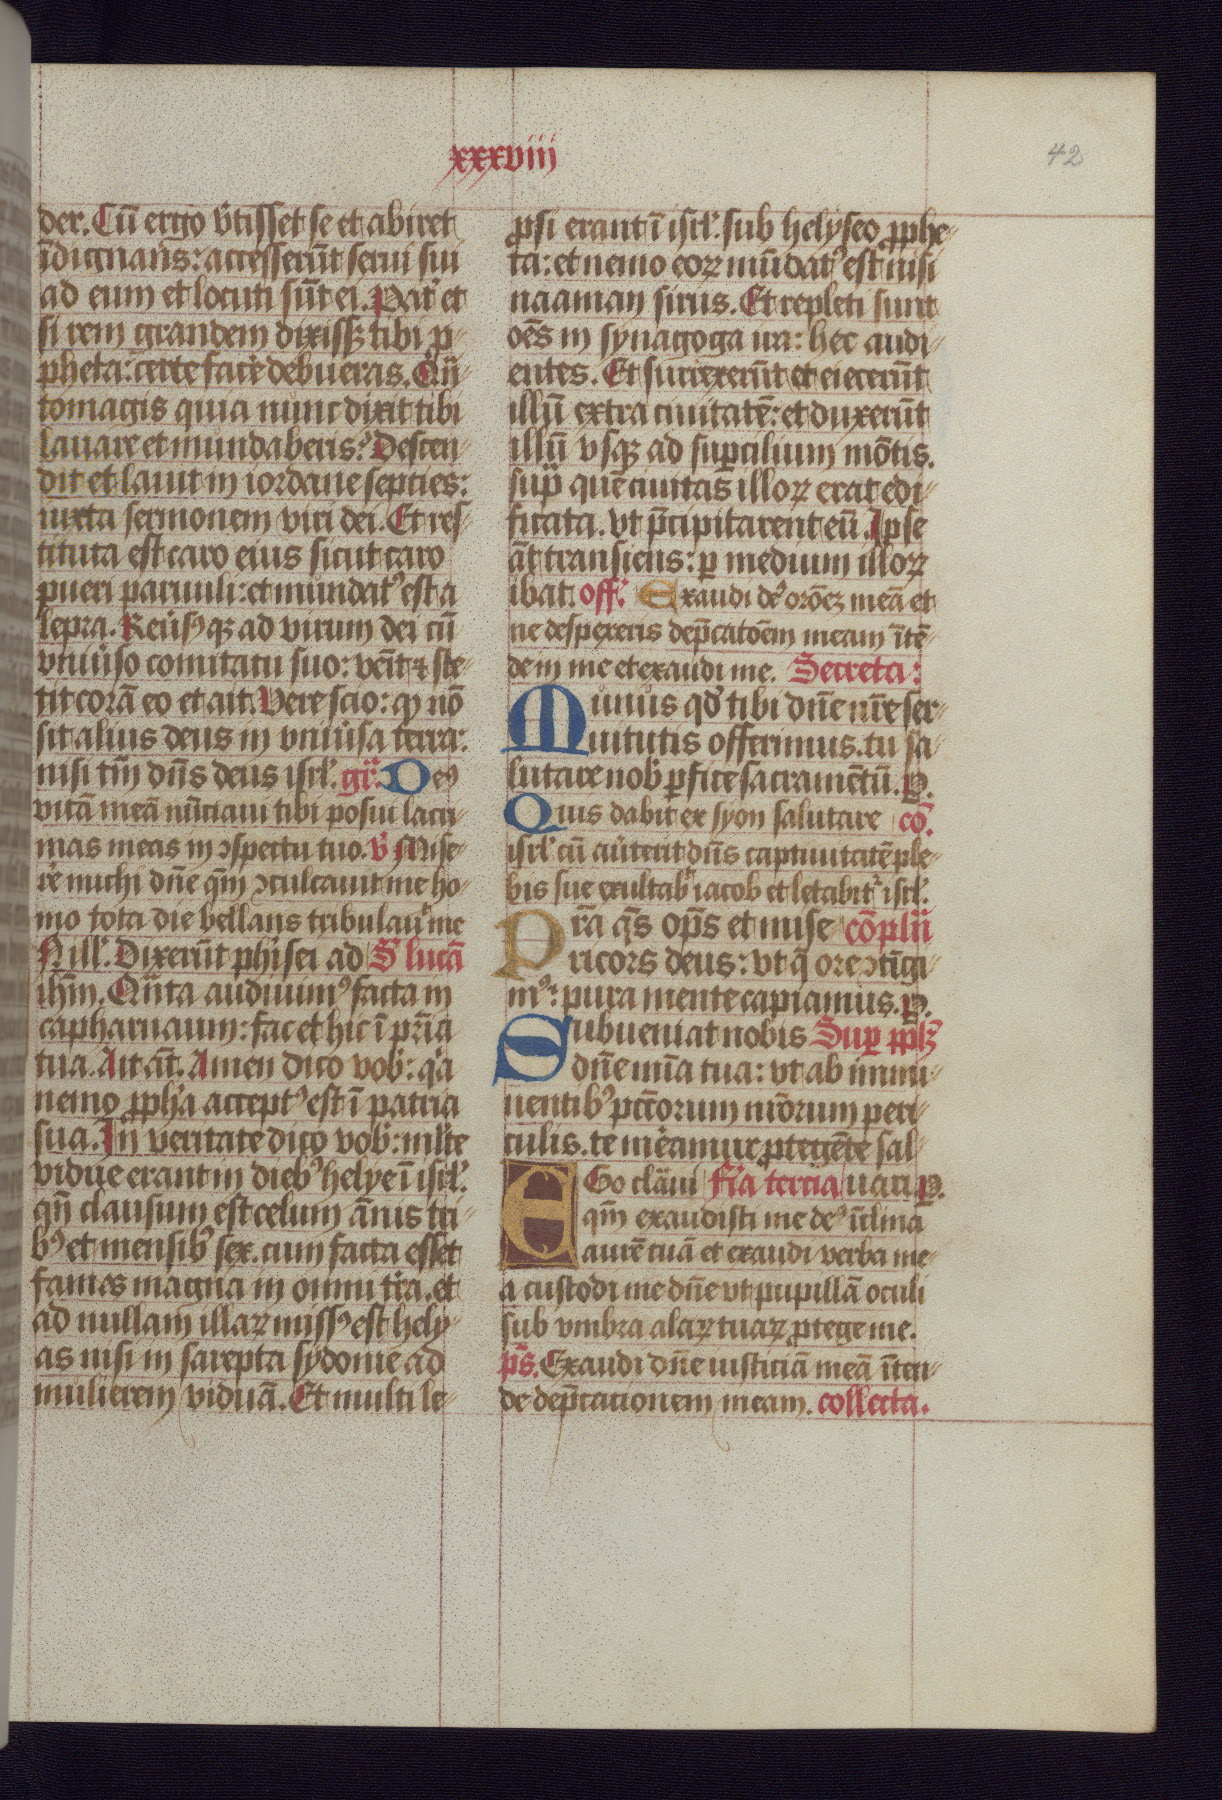 xxxviii
42
der. Cū ergo v̾tisset se et abiret
īdignans: accesserūt serui sui
ad eum et locuti sūt ei. Pat̾ et
si rem grandem dixissꝫ tibi ꝓ-
pheta: certe face̾ debueras. Qn̄
tomagis quia nunc dixit tibi
lauare et mundaberis? Descen-
dit et lauit in iordane septies:
iuxta sermonem viri dei. Et res-
tituta est caro eius sicut caro
pueri paruuli: et mundatꝰ est a
lepra. Reuersꝰqꝫ ad virum dei cū
vniu̾so comitatu suo: ven̄it ⁊ ste-
tit corā eo et ait. Vere scio: ꝙ nō
sit alius deus in vniu̾sa terra:
nisi tm̄ dn̄s deus isrl̾. gr̾. Deꝰ
vitā meā nūciaui tibi posui lacri-
mas meas in ꝯspectu tuo. v̾ Mise-
re̾ michi dn̄e qm̄ ꝯculcauit me ho-
mo tota die bellans tribulauͥt me
N ill̾. Dixerūt phīsei ad S lucā
ih̄m. Qn̄ta audiuimꝰ facta in
capharnaum: fac et hic ī pr̄ia
tua. Ait āt. Amen dico vob̾: qͥa
nemo ꝓpha acceptꝰ est ī patria
sua. In veritate dico vob̾: multe
vidue erant in diebꝰ helye ī isrl̾.
qn̄ clausum est celum ānis tri-
bꝰ et mensibꝰ sex. cum facta esset
fames magna in omni t̾ra. et
ad nullam illaꝝ missꝰ est hely-
as nisi in sarepta sydonie ad
mulierem viduā. Et multi le-
ꝓsi erant ī isrl̾. sub helyseo ꝓphe-
ta: et nemo eoꝝ mūdatꝰ est nisi
naaman sirus. Et repleti sunt
oēs in synagoga ira: hec audi-
entes. Et surrexerūt et eiecerūt
illū extra ciuitatē: et duxerūt
illū vsqꝫ ad suꝑcilium mōtis.
supͣ quē ciuitas illoꝝ erat edi-
ficata. vt p̄cipitarent eū. Ipse
āt transiens: ꝑ medium illoꝝ
ibat. off̾. Exaudi deꝰ orōeꝫ meā et
ne despexeris dep̄catōem meam ītē-
de in me et exaudi me. Secreta:
Munus qd̾ tibi dn̄e nr̄e ser-
uitutis offerimus. tu sa-
lutare nob̾ ꝑfice sacramētū. P.
Quis dabit ex syon salutare cō.
isrl̾ cū auerterit dn̄s captiuitatē ple-
bis sue exultabͥ iacob et letabitͬ isrl̾.
Pr̄a qs̄ op̄s et mise cōpln̄
ricors deus: vt qͥ ore ꝯtīgi-
mꝰ: pura mente capiamus. P.
Subueniat nobis Suꝑ pp̄lꝫ
dn̄e mīa tua: vt ab immi-
nentibꝰ pctōrum nr̄orum peri-
culis. te me̾amur ꝓtegēte sal-
EGo clāui fr̄ia tercia uari. P.
qm̄ exaudisti me deꝰ īclina
aurē tuā et exaudi verba me-
a custodi me dn̄e vt pupillā oculi
sub vmbra alaꝝ tuaꝝ ꝓtege me.
ps̄. Exaudi dn̄e iusticiā meā īten-
de dep̄cationem meam. collecta.